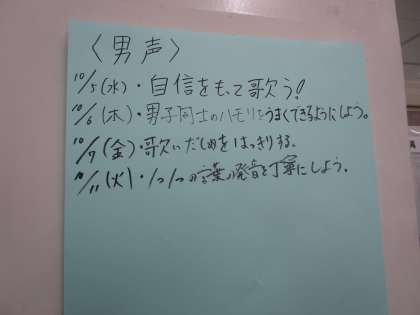 〈男声〉
10/5(水)・自信をもって歌う!
10/6(木)・男子同士のハモリをうまくできるようにしよう。
10/7(金)・歌いだしめをはっきりする。
10/11(火)・1つ1つの言葉の発音を丁寧にしよう。